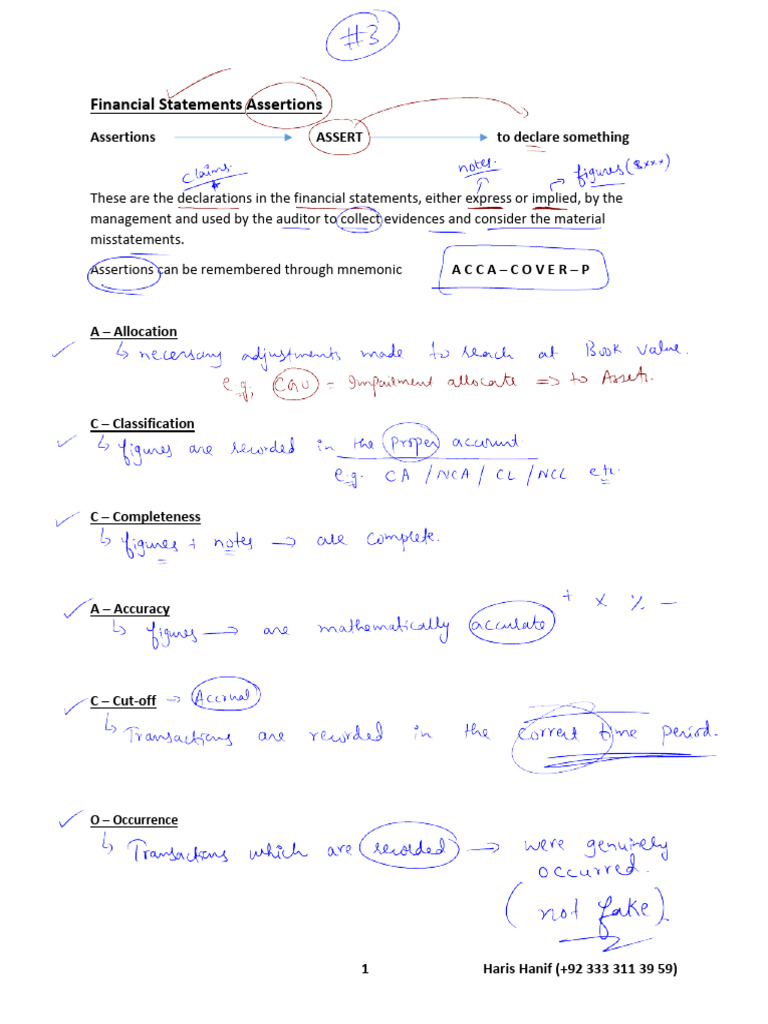 #3
Financial Statements Assertions
Assertions ASSERT to declare something
claims. notes. figures (8xxx)
These are the declarations in the financial statements, either express or implied, by the
management and used by the auditor to collect evidences and consider the material
misstatements.
Assertions can be remembered through mnemonic A C C A – C O V E R – P
A – Allocation
necessary adjustments made to reach at Book value.
e.g, CGU = Impairment allocate => to Assets.
C – Classification
figures are recorded in the proper account
e.g. CA / NCA / CL / NCL etc.
C – Completeness
figures + notes → are complete.
A – Accuracy
+ x % –
figures → are mathematically accurate
C – Cut-off → Accrual
Transactions are recorded in the correct time period.
O – Occurrence
Transactions which are recorded → were genuinely
occurred.
(not fake)
1 Haris Hanif (+92 333 311 39 59)